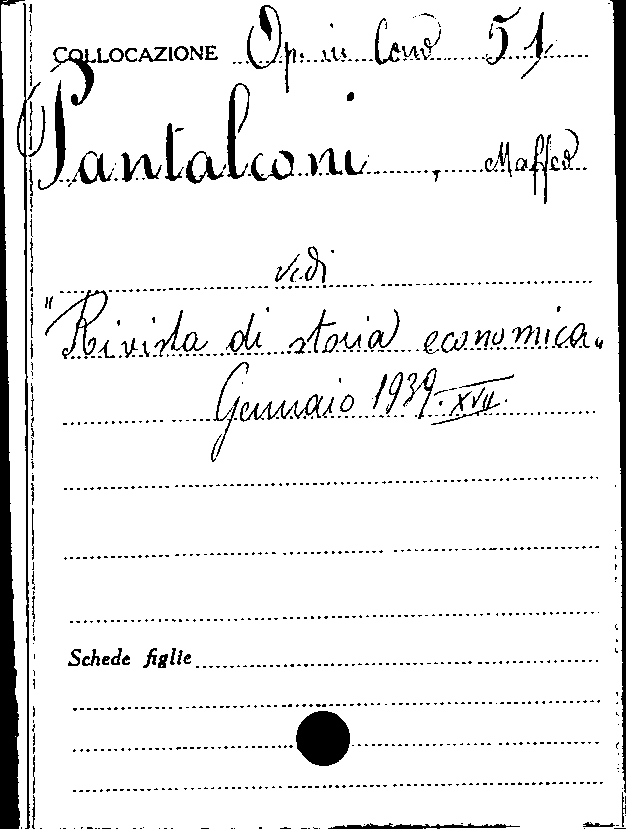 COLLOCAZIONE Op. in Cons 51
Pantaleoni, Maffeo
vedi
"Rivista di storia economica"
Gennaio 1939. XVII.
Schede figlie